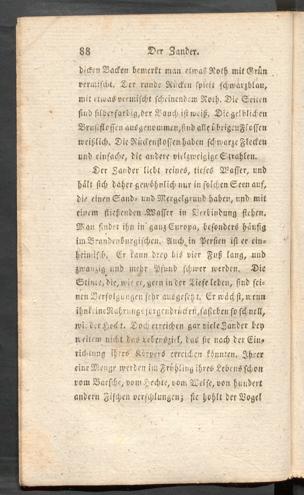 88 Der Zander.
dicken Backen bemerkt man etwas Roth mit Grün
vermischt. Der runde Rücken spielt schwarzblau,
mit etwas vermischt scheinendem Roth. Die Seiten
sind silberfarbig, der Bauch ist weiß. Die gelblichen
Brustflossen ausgenommen, sind alle übrigen Flossen
weißlich. Die Rückenflossen haben schwarze Flecken
und einfache, die andere vielzweigige Strahlen.
Der Zander liebt reines, tiefes Wasser, und
hält sich daher gewöhnlich nur in solchen Seen auf,
die einen Sand- und Mergelgrund haben, und mit
einem fließenden Wasser in Verbindung stehen.
Man findet ihn in ganz Europa, besonders häufig
im Brandenburgischen. Auch in Persien ist er ein-
heimisch. Er kann drey bis vier Fuß lang, und
zwanzig und mehr Pfund schwer werden. Die
Stinte, die, wie er, gern in der Tiefe leben, sind sei-
nen Verfolgungen sehr ausgesetzt. Er wächst, wenn
ihn keine Nahrungssorgen drücken, fast eben so schnell,
wie der Hecht. Doch erreichen gar viele Zander bey
weitem nicht das Lebensziel, das sie nach der Ein-
richtung ihres Körpers erreichen könnten. Ihrer
eine Menge werden im Frühling ihres Lebens schon
vom Baersche, vom Hechte, vom Welse, von hundert
andern Fischen verschlungen; sie hohlt der Vogel